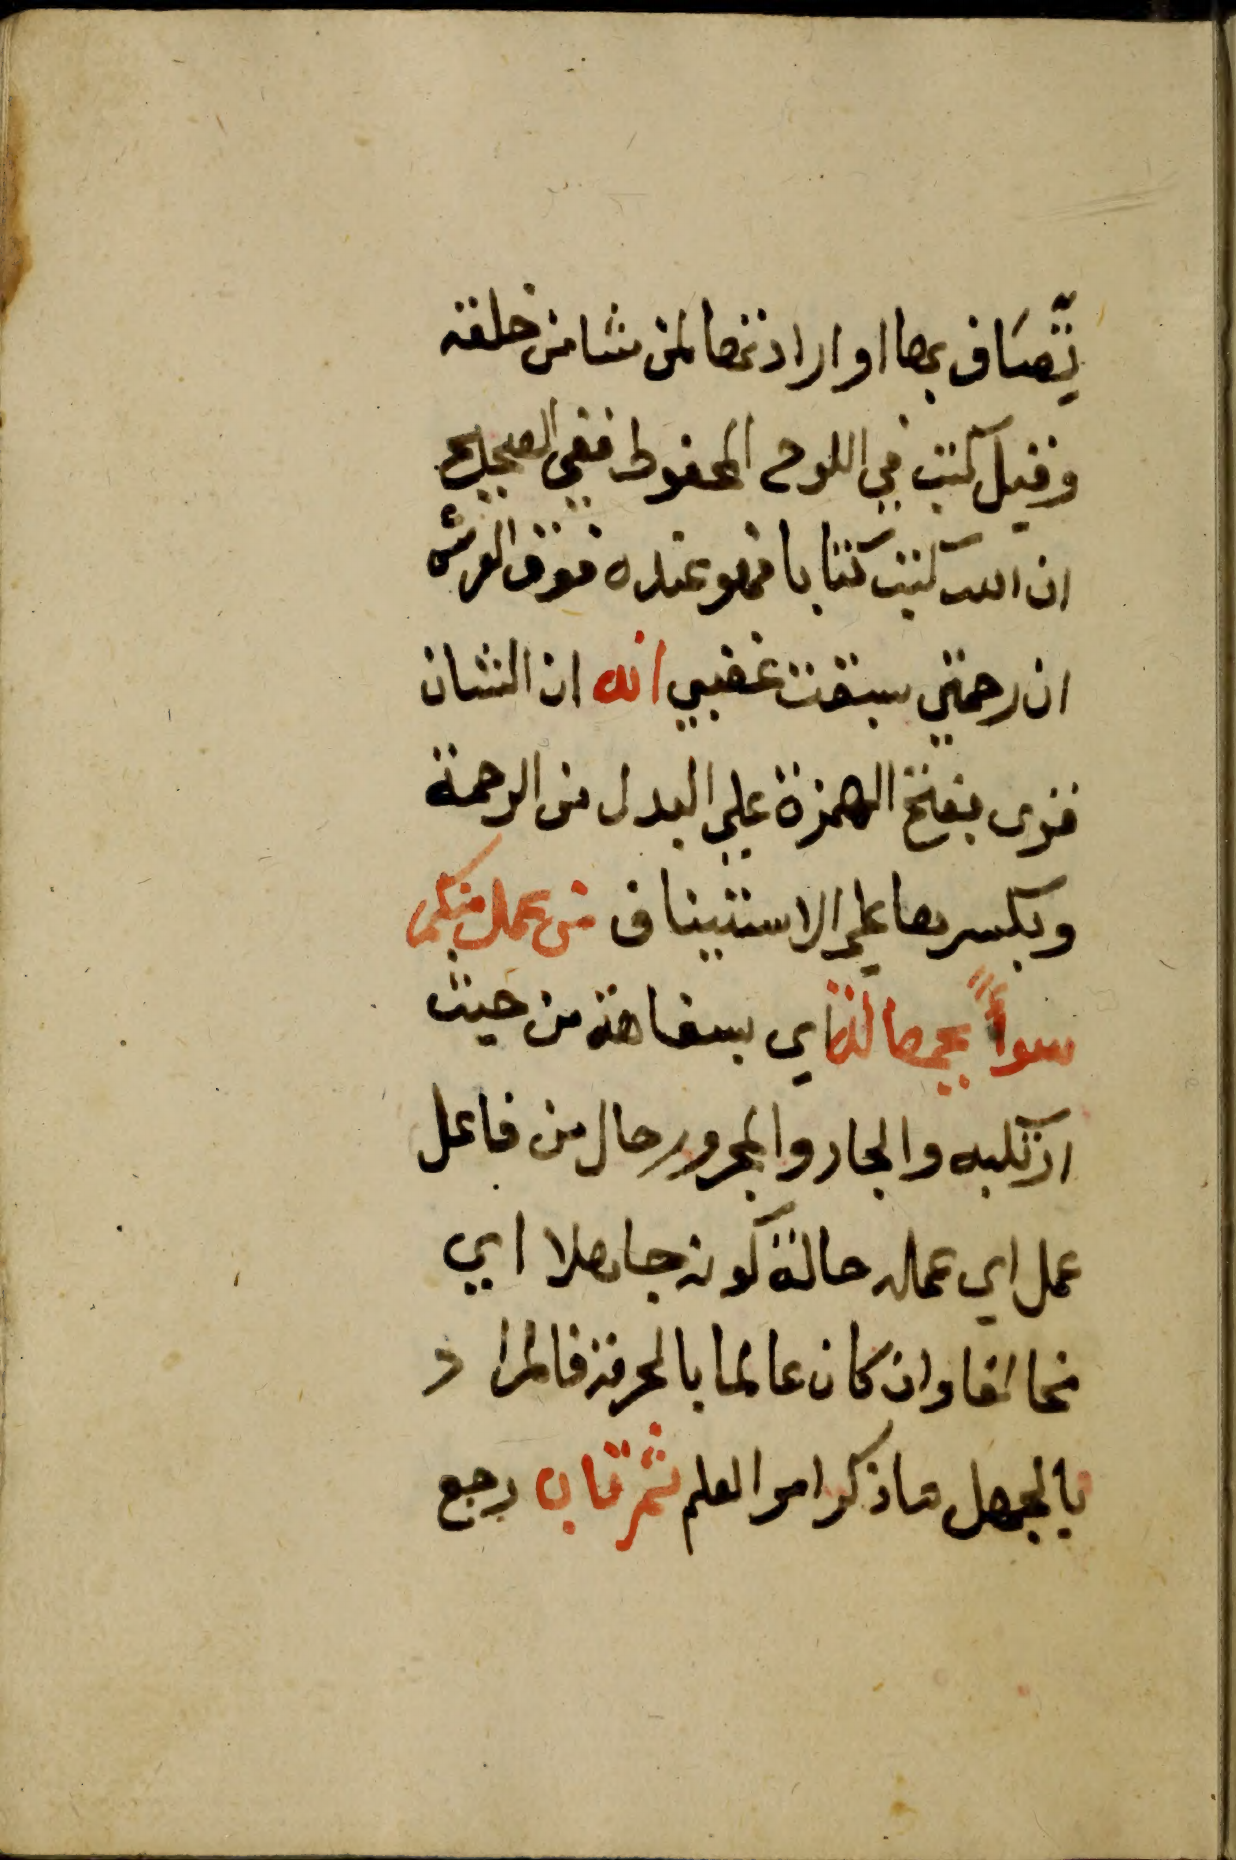 يتّصَاف بها او ارادتها لمن شا من خلقه
وقيل كتب في اللوح المحفوظ ففي الصحيح
ان الله كتب كتابا فهو عنده فوق العرش
ان رحمتي سبقت غضبي انه ان الشان
قري بفتح الهمزة علي البدل من الرحمة
وبكسرها علي الاستيناف من عمل منكم
سوأً بجهالة اي بسفاهة من حيث
ارتكبه والجار والمجرور حال من فاعل
عمل اي عمله حالة كونه جاهلا اي
مخالفا وان كان عالما بالحرفة فالمراد
بالجهل هاذكر امرا لعلم ثم تاب رجع